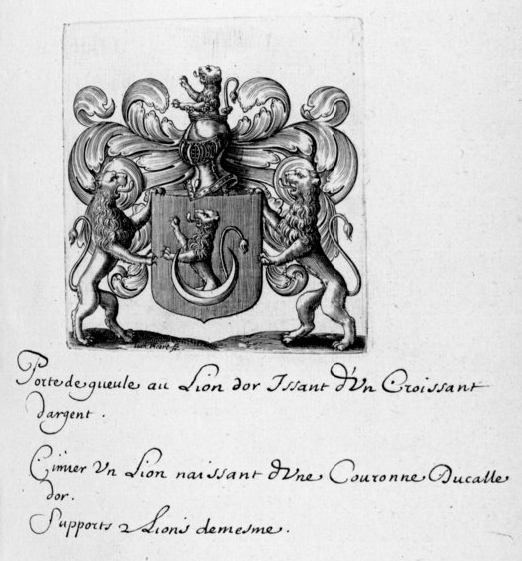 Porte de gueule au Lion dor Issant d'Vn Croissant
dargent.
Cimier Vn Lion naissant dVne Couronne Ducalle
dor.
Supports 2 Lions demesme.